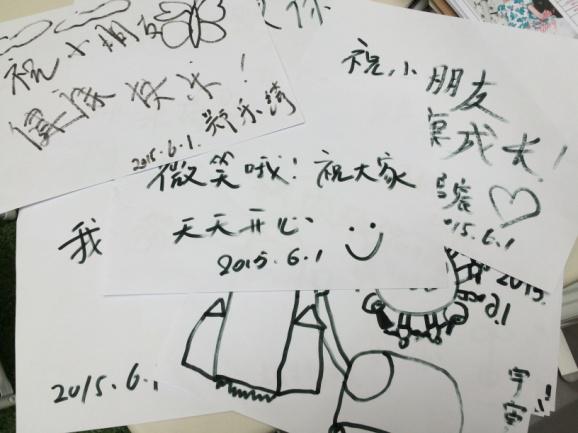 祝小朋友
健康快乐！
2015.6.1.
你
祝小朋友
成大！
15.6.1
微笑哦！祝大家
天天开心
2015.6.1
我
2015.6.1
2015.
6.1
宇宙